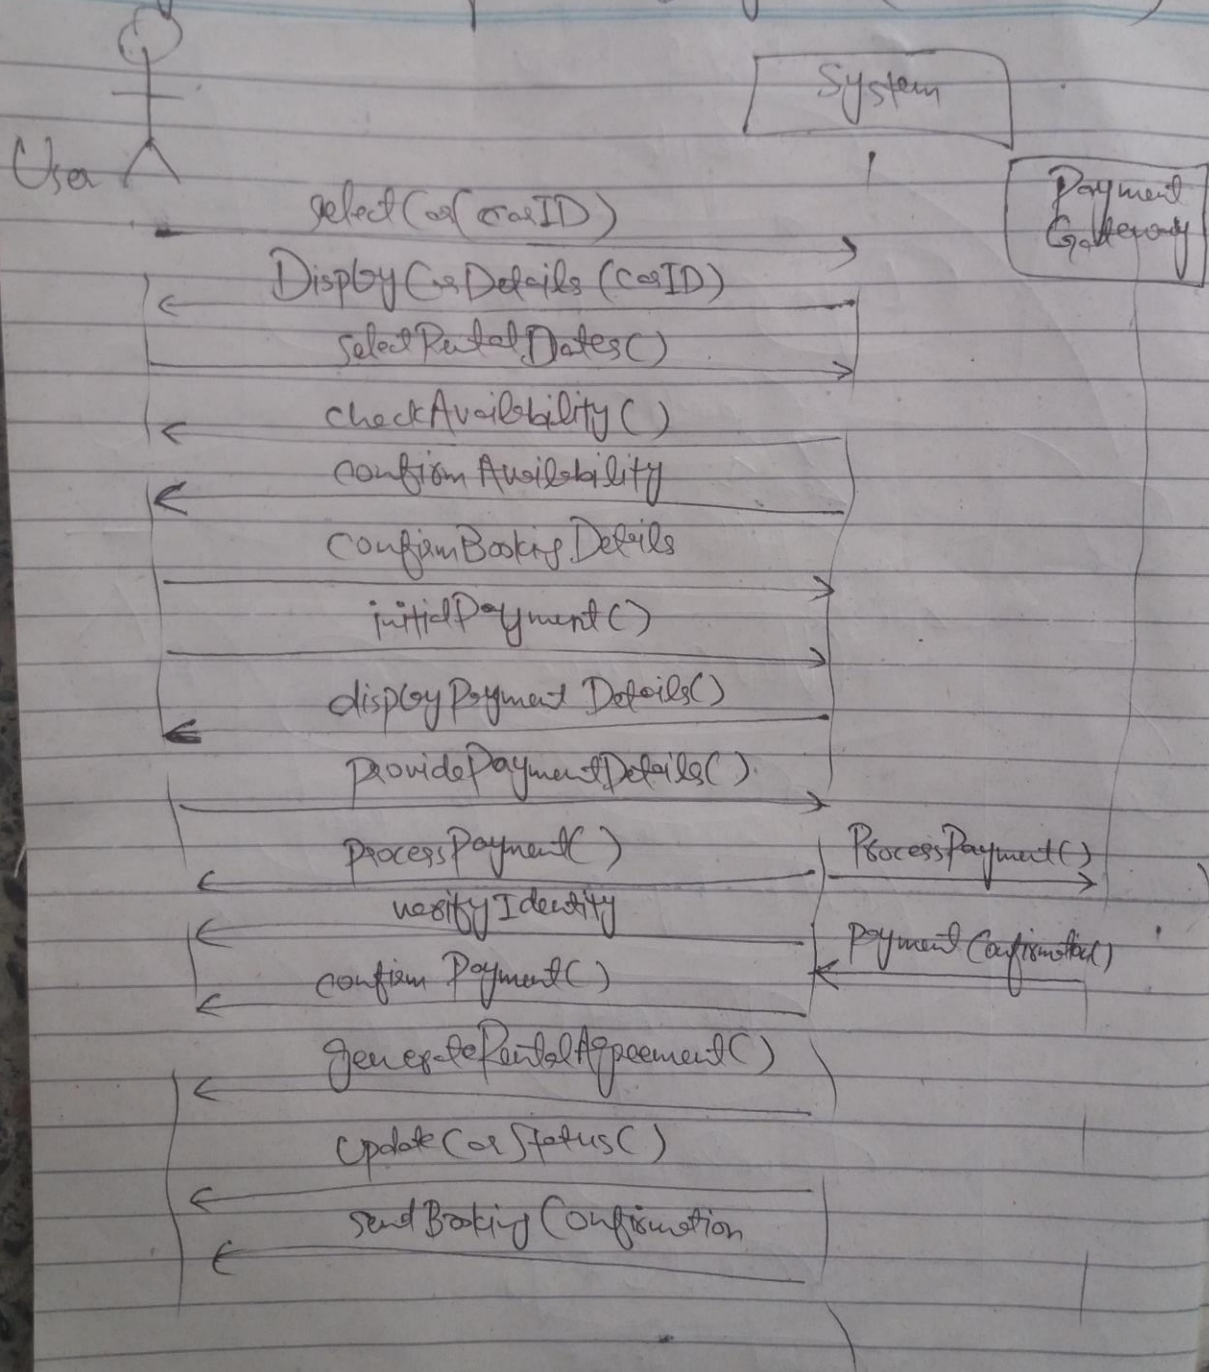 System
User
Payment
Gateway
selectCar(carID)
DisplayCarDetails(carID)
selectRentalDates()
checkAvailability()
confirmAvailability
confirmBookingDetails
initialPayment()
displayPayment Details()
providePaymentDetails()
processPayment()
ProcessPayment()
verifyIdentity
Payment Confirmation()
confirm Payment()
generateRentalAgreement()
updateCarStatus()
sendBookingConfirmation